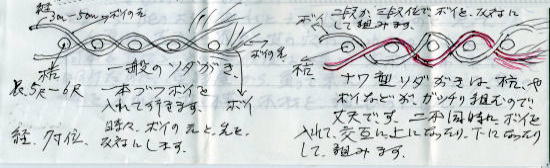 径 3cm〜5cmのボイの元
ボイの先
杭
一般のソダがき、
長.5R〜6R
一本づつボイを
入れて行きます。
ボイ
時々、ボイの元と先を、
径、7寸位、
します。
ボイ
二段か三段位でボイを、
して組みます。
杭
ナワ型ソダがきは、杭や
ボイなどが、ガッチリ組むので
丈夫です。二本同時に、ボイを
入れて、交互に上になったり、下になったり
して、組みます。